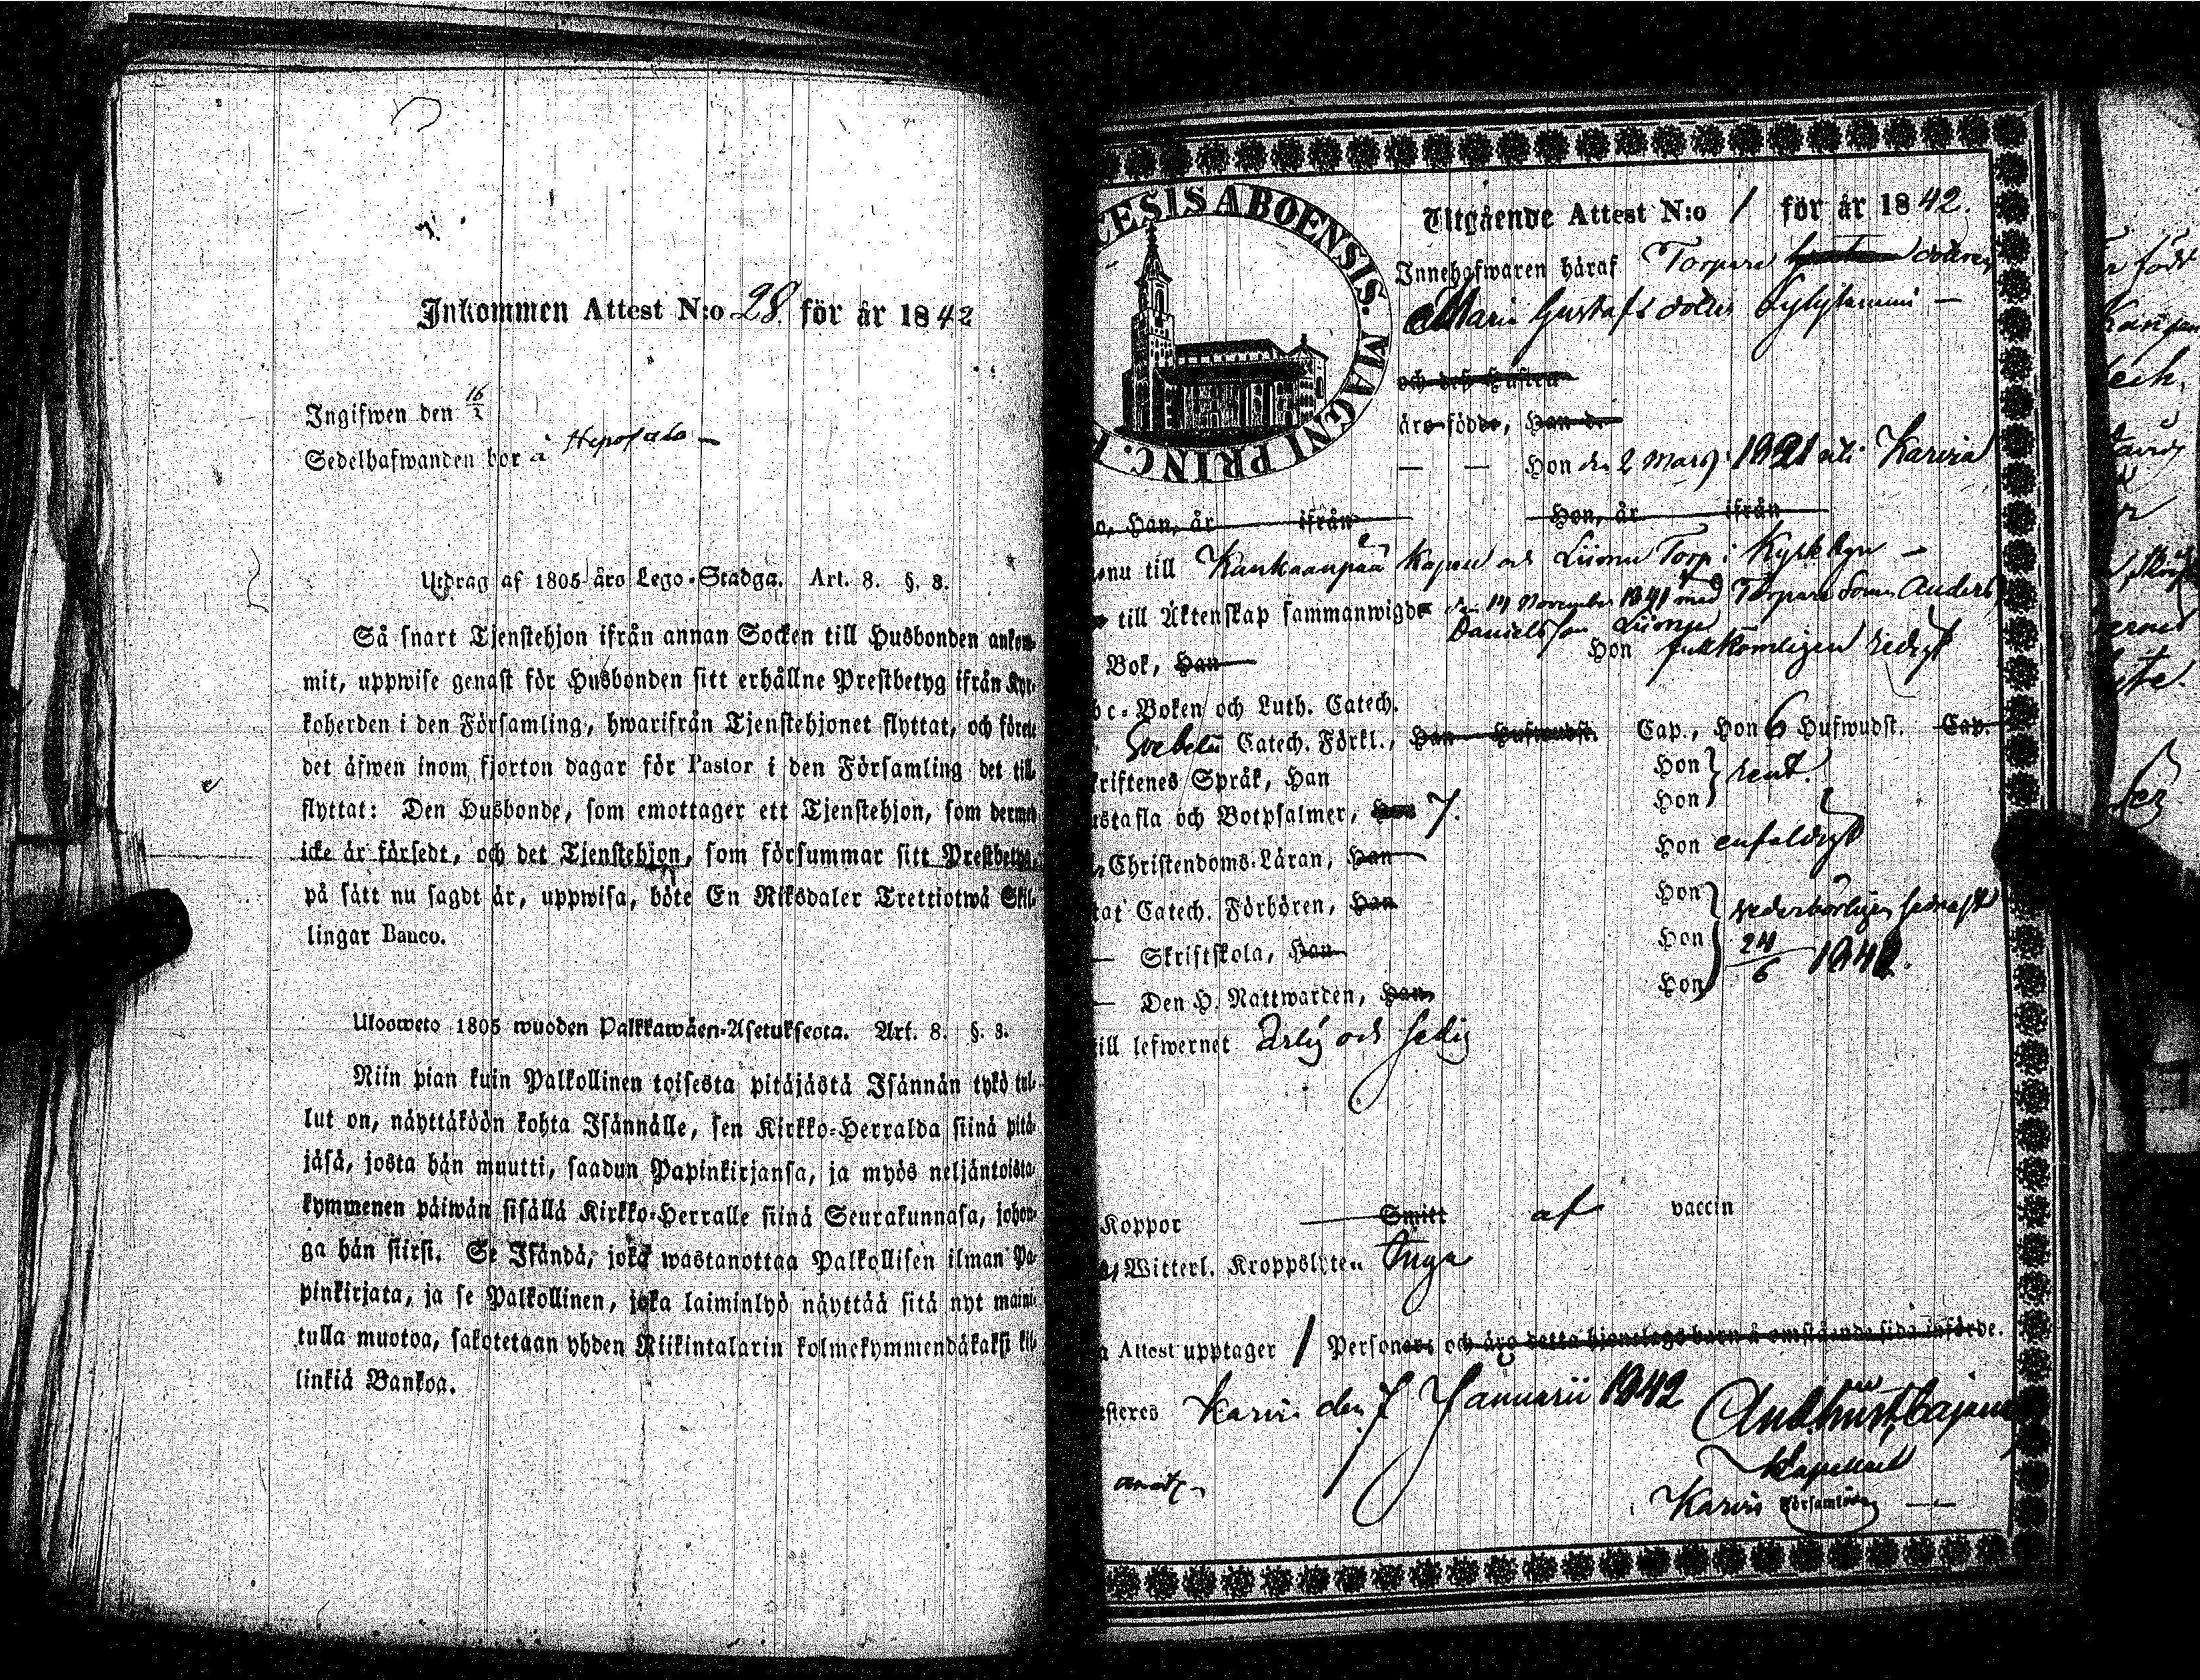 Inkommen Attest N:o 28. för år 1842
Ingifwen den 16/2
Sedelhafwanden bor å
Utdrag af 1805 åro Lego-Stadga. Art. 8. §. 3.
Så snart Tjenstehjon ifrån annan Socken till Husbonden ankom-
mit, uppwise genast för Husbonden sitt erhållne Prestbetyg ifrån Kyr-
koherden i den Församling, hwarifrån Tjenstehjonet flyttat, och förete
det äfwen inom fjorton dagar för Pastor i den Församling det till-
flyttat: Den Husbonde, som emottager ett Tjenstehjon, som dermed
icke är försedt, och det Tjenstehjon, som försummar sitt Prestbetyg,
på sätt nu sagdt är, uppwisa, böte En Riksdaler Trettiotwå Skil-
lingar Banco.
Uloosweto 1805 wuoden Palkkawäen-Asetuksesta. Art. 8. §. 3.
Niin pian kuin Palkollinen toisesta pitäjästä Isännän tykö tul-
lut on, näyttäköön kohta Isännälle, sen Kirkko-Herralda siinä pitä-
jäsä, josta hän muutti, saadun Papinkirjansa, ja myös neljäntoista-
kymmenen päiwän sisällä Kirkko-Herralle siinä Seurakunnasa, johon-
ga hän siirsi. Se Isändä, joka wastanottaa Palkollisen ilman Pa-
pinkirjata, ja se Palkollinen, joka laiminlyö näyttää sitä nyt maini-
tulla muotoa, sakotetaan yhden Riikintalarin kolmekymmendäkaksi kil-
linkiä Bankoa.
CESIS ABOENSIS. MAGNI PRINC. F
Utgående Attest N:o 1 för år 1842.
Innehafwaren häraf Torpare dottren
Maria Gustafs dotter
och dess Hustru
äro födde, Han d.
Hon den 2 Mars 1821 uti Karvia
Han, år ifrån Hon, år ifrån
nu till Kankaanpää Kapell och Liimu Torp i Kyrkbyn
till Äktenskap sammanwigde den 14 November 1841 med Torpare Sonen Anders
Danielsson Liimu
Bok, Han Hon fullkomligen redigt
bc-Boken och Luth. Catech.
Svebelii Catech. Förkl., Han Hufwudst. Cap., Hon 6 Hufwudst. Cap.
kriftenes Språk, Han Hon rent.
ustafla och Botpsalmer, Han 7. Hon
Christendoms-Läran, Han Hon enfaldigt
tat Catech. Förhören, Han Hon wederbörligen
Skriftskola, Han Hon 24/6
Den H. Nattwarden, Han Hon
till lefwernet Ärlig och sedig
Koppor Smitt af vaccin
Witterl. Kroppslyten Inga
a Attest upptager 1 Personers och äro detta hjonelags barn å omstående sida införde.
esteres Karvia den 7 Januarii 1842
Kapellan
Karvia Församling